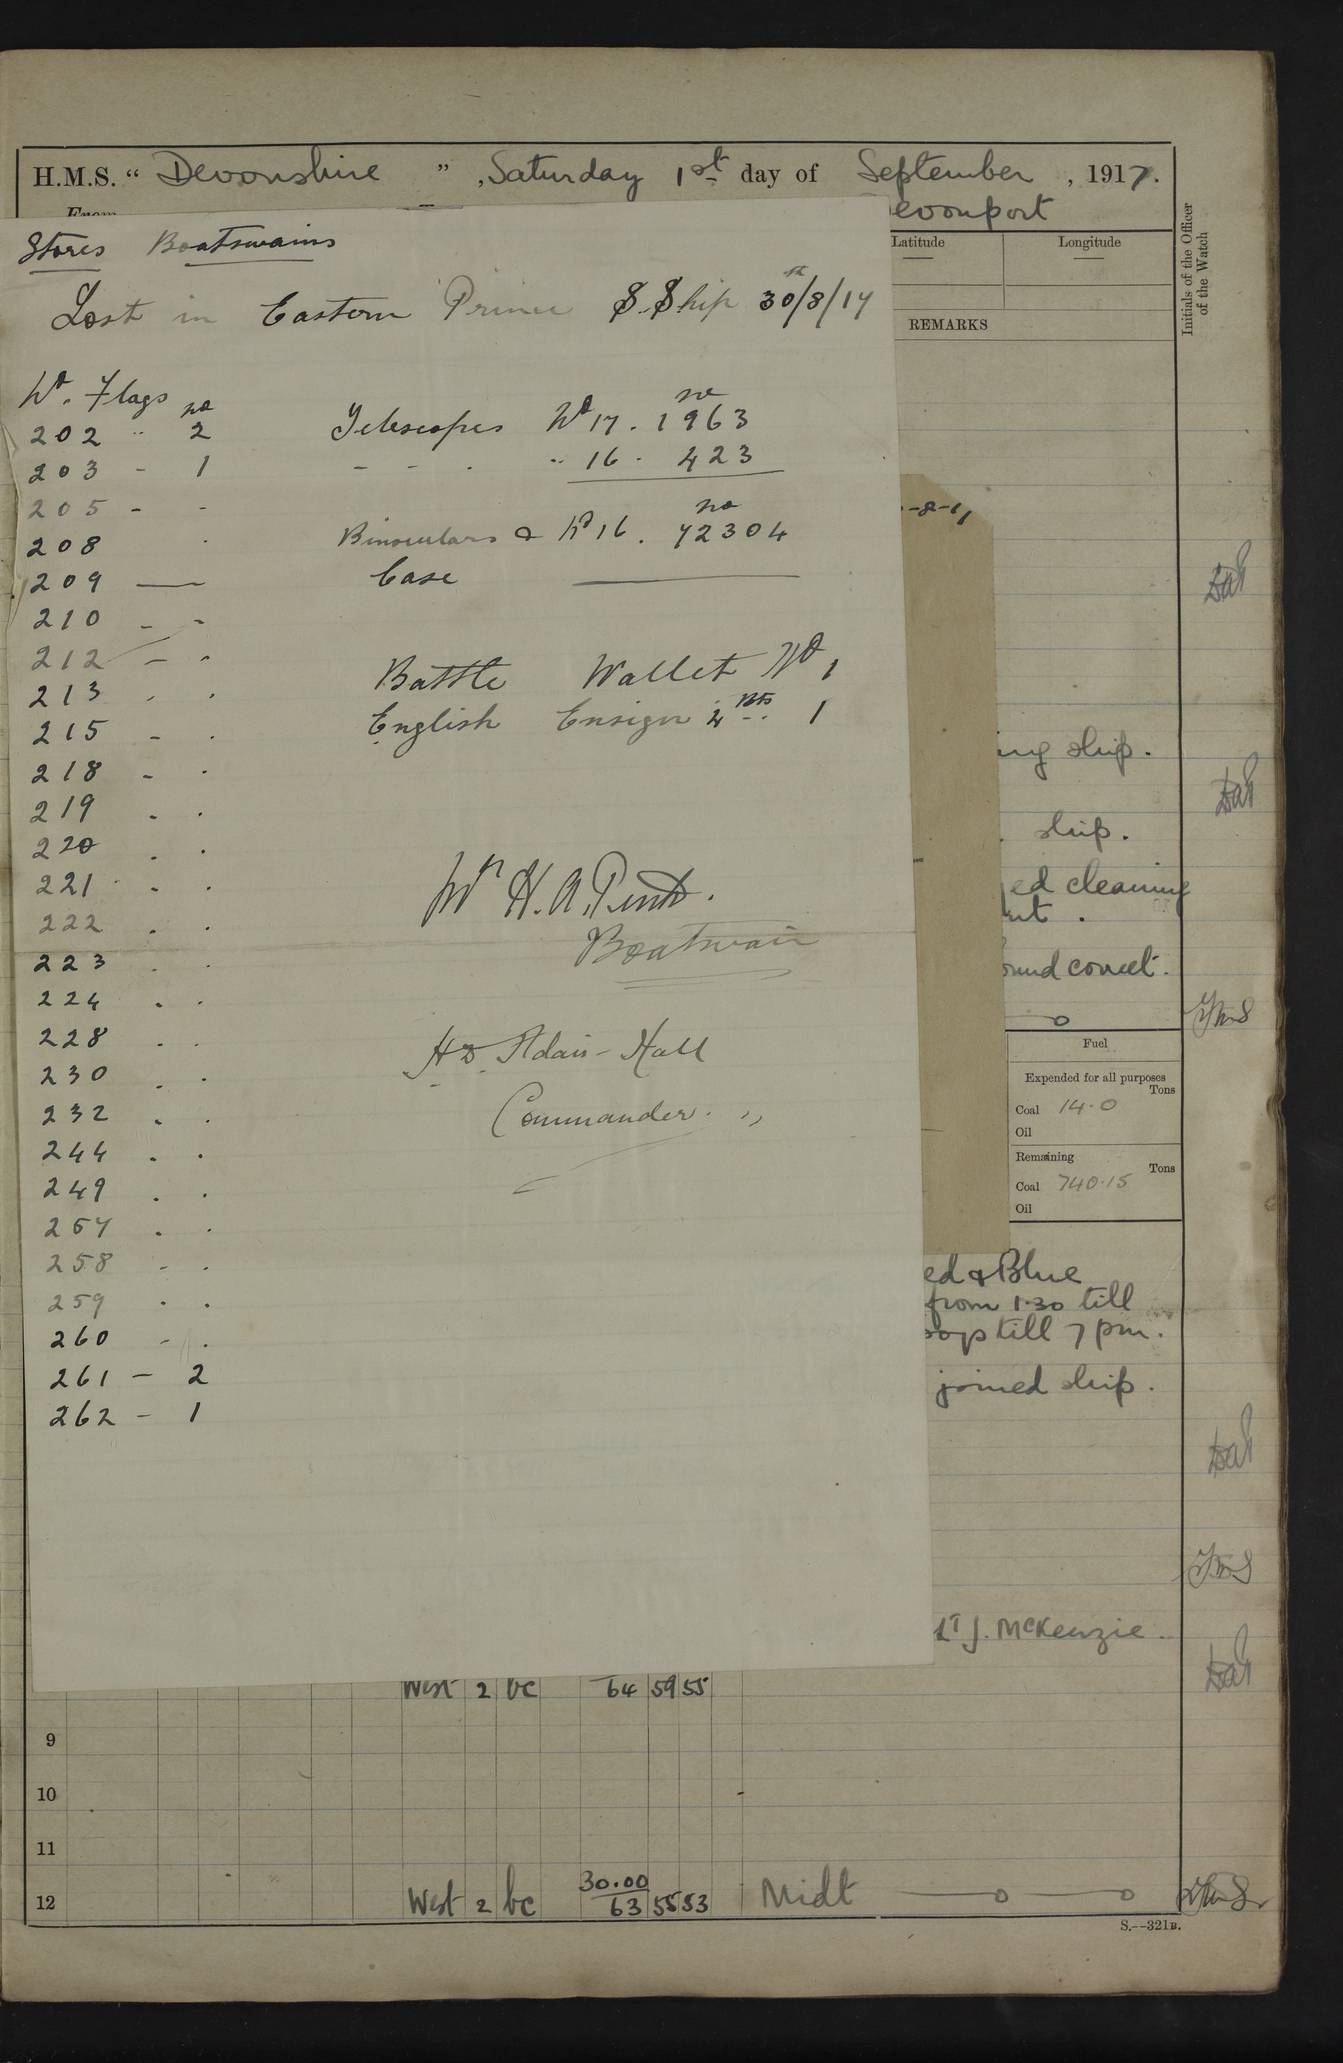 H.M.S. “ Devonshire ” , Saturday 1st day of September , 1917.
From
evonport
Latitude
Longitude
REMARKS
Initials of the Officer
of the Watch
Stores Boatswains
Lost in Eastern Prince S.Ship 30/8/17
Flags no
202 " 2
203 - 1
205 - -
208 .
209 —
210 - -
212 - -
213 . .
215 - .
218 - .
219 . .
220 . .
221 . .
222 . .
223 . .
224 . .
228 . .
230 . .
232 . .
244 . .
249 . .
257 . .
258 - .
259 . .
260 - .
261 - 2
262 - 1
no
Telescopes 17 . 1963
- - . " 16 . 423
no
Binoculars & 16 . 72304
Case
Battle Wallet 1
English Ensign 4 Bts 1
H. A.
Boatswain
Adair-Hall
Commander
ing ship.
ship.
ed cleaning
ound correct.
Fuel
Expended for all purposes
Tons
Coal 14.0
Oil
Remaining
Tons
Coal 740.15
Oil
ed & Blue
from 1.30 till
till 7 pm.
joined ship.
Lt J. McKenzie.
West 2 bc 64 59 55
9
10
11
12 West 2 bc 30.00 63 55 53 Midt
S.—321B.